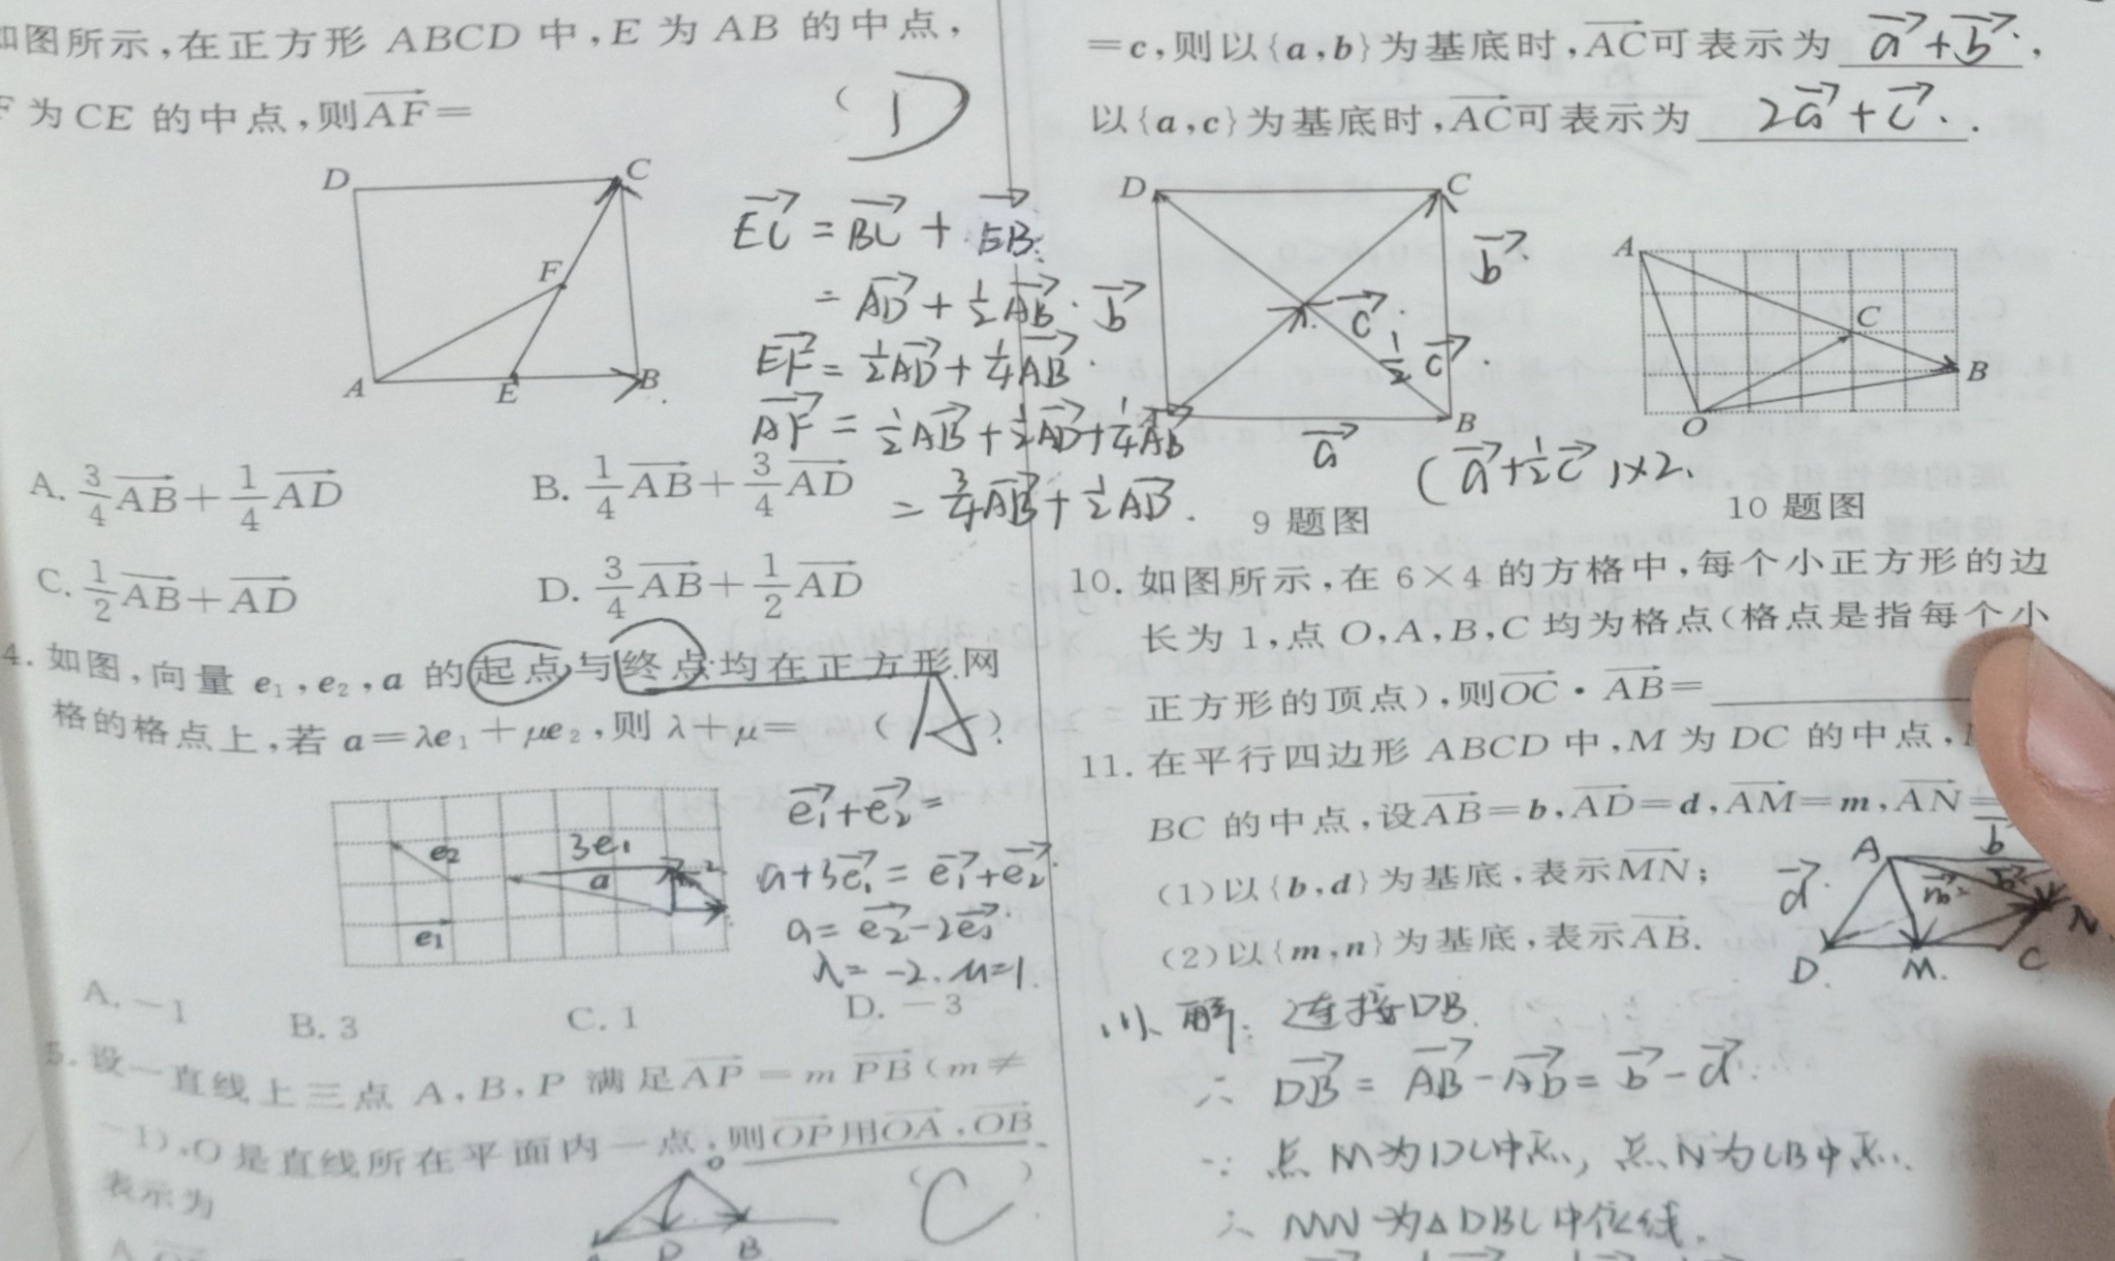 如图所示,在正方形 ABCD 中,E 为 AB 的中点,
F 为 CE 的中点,则$\overrightarrow{AF}$= ( D
D C F A E B
$\overrightarrow{EC}$ = $\overrightarrow{BC}$ + $\overrightarrow{EB}$.
= $\overrightarrow{AD}$ + $\frac{1}{2}\overrightarrow{AB}$.
$\overrightarrow{EF}$ = $\frac{1}{2}\overrightarrow{AD}$ + $\frac{1}{4}\overrightarrow{AB}$.
$\overrightarrow{AF}$ = $\frac{1}{2}\overrightarrow{AB}$ + $\frac{1}{2}\overrightarrow{AD}$ + $\frac{1}{4}\overrightarrow{AB}$
= $\frac{3}{4}\overrightarrow{AB}$ + $\frac{1}{2}\overrightarrow{AD}$.
A. $\frac{3}{4}\overrightarrow{AB}+\frac{1}{4}\overrightarrow{AD}$ B. $\frac{1}{4}\overrightarrow{AB}+\frac{3}{4}\overrightarrow{AD}$
C. $\frac{1}{2}\overrightarrow{AB}+\overrightarrow{AD}$ D. $\frac{3}{4}\overrightarrow{AB}+\frac{1}{2}\overrightarrow{AD}$
4. 如图,向量 e₁,e₂,a 的起点与终点均在正方形网
格的格点上,若 a=λe₁+μe₂,则 λ+μ= ( A )
e₂ 3e₁ a e₁
$\overrightarrow{e_1}$+$\overrightarrow{e_2}$=
a+3$\overrightarrow{e_1}$ = $\overrightarrow{e_1}$+$\overrightarrow{e_2}$.
a = $\overrightarrow{e_2}$-2$\overrightarrow{e_1}$.
λ=-2. μ=1.
A. −1 B. 3 C. 1 D. −3
5. 设一直线上三点 A,B,P 满足$\overrightarrow{AP}$=m$\overrightarrow{PB}$(m≠
−1),O 是直线所在平面内一点,则$\overrightarrow{OP}$用$\overrightarrow{OA}$,$\overrightarrow{OB}$
表示为 ( C )
O P B
=c,则以{a,b}为基底时,$\overrightarrow{AC}$可表示为 $\overrightarrow{a}$+$\overrightarrow{b}$. ,
以{a,c}为基底时,$\overrightarrow{AC}$可表示为 2$\overrightarrow{a}$+$\overrightarrow{c}$. .
D C B $\overrightarrow{b}$ $\overrightarrow{b}$. $\overrightarrow{c}$. $\frac{1}{2}\overrightarrow{c}$. $\overrightarrow{a}$
($\overrightarrow{a}$+$\frac{1}{2}\overrightarrow{c}$)×2.
A C B O
9 题图 10 题图
10. 如图所示,在 6×4 的方格中,每个小正方形的边
长为 1,点 O,A,B,C 均为格点(格点是指每个小
正方形的顶点),则$\overrightarrow{OC}$·$\overrightarrow{AB}$=
11. 在平行四边形 ABCD 中,M 为 DC 的中点,
BC 的中点,设$\overrightarrow{AB}$=b,$\overrightarrow{AD}$=d,$\overrightarrow{AM}$=m,$\overrightarrow{AN}$=
(1)以{b,d}为基底,表示$\overrightarrow{MN}$;
(2)以{m,n}为基底,表示$\overrightarrow{AB}$.
A b $\overrightarrow{d}$. N D. M. C
(1). 解: 连接DB.
∴ $\overrightarrow{DB}$ = $\overrightarrow{AB}$-$\overrightarrow{AD}$=$\overrightarrow{b}$-$\overrightarrow{d}$.
∵ 点 M为DC中点, 点N为CB中点.
∴ MN为△DBC中位线.